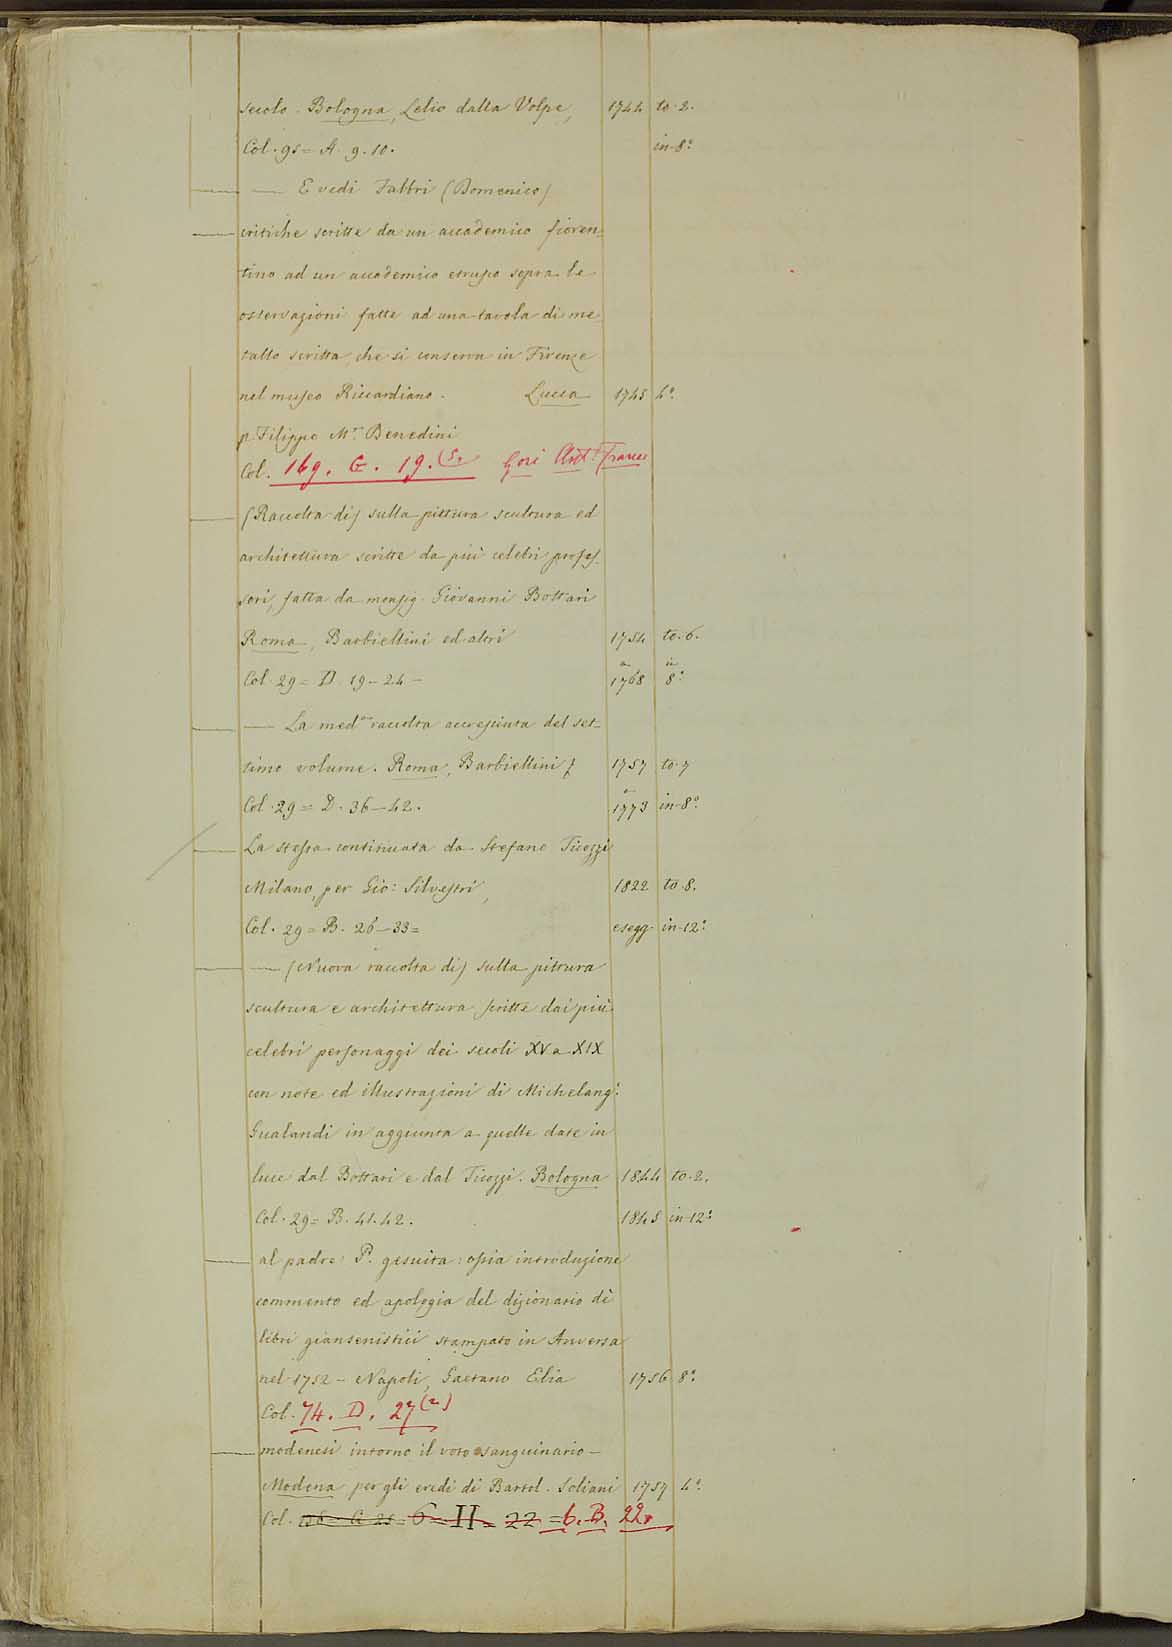 secolo. Bologna, Lelio dalla Volpe, 1744 to. 2.
Col. 95 = A. 9. 10. in-8°
— — E vedi Fabbri (Domenico)
— critiche scritte da un accademico fioren-
tino ad un accademico etrusco sopra le
osservazioni fatte ad una tavola di me-
tallo scritta, che si conserva in Firenze
nel museo Riccardiano. Lucca 1745 4°.
p. Filippo M.ª Benedini
Col. 169. G. 19. (5. Gori Ant.º Franc
— (Raccolta di) sulla pittura scultura ed
architettura scritte da più celebri profes-
sori, fatta da monsig. Giovanni Bottari
Roma, Barbiellini ed altri 1754 to. 6.
a in
Col. 29 = D. 19 - 24 - 1768 8°.
— — La med.ª raccolta accresciuta del set-
timo volume. Roma, Barbiellini 1757 to. 7
a
Col. 29 = D. 36 - 42. 1773 in-8°
— La stessa continuata da Stefano Ticozzi
Milano, per Gio: Silvestri, 1822 to. 8.
Col. 29 = B. 26 - 33 = esegg. in-12°.
— — (Nuova raccolta di) sulla pittura
scultura e architettura scritte dai più
celebri personaggi dei secoli XV a XIX
con note ed illustrazioni di Michelang.
Gualandi in aggiunta a quelle date in
luce dal Bottari e dal Ticozzi. Bologna 1844 to. 2.
Col. 29 = B. 41. 42. 1845 in-12°.
— al padre P. gesuita: ossia introduzione
commento ed apologia del dizionario di
libri giansenistici stampato in Anversa
nel 1752 - Napoli, Gaetano Elia 1756 8°.
Col. 74. D. 27 (2)
— modenesi intorno il voto sanguinario -
Modena per gli eredi di Bartol. Soliani 1757 4°.
Col. 6 = H = 22 = 6. B. 22.